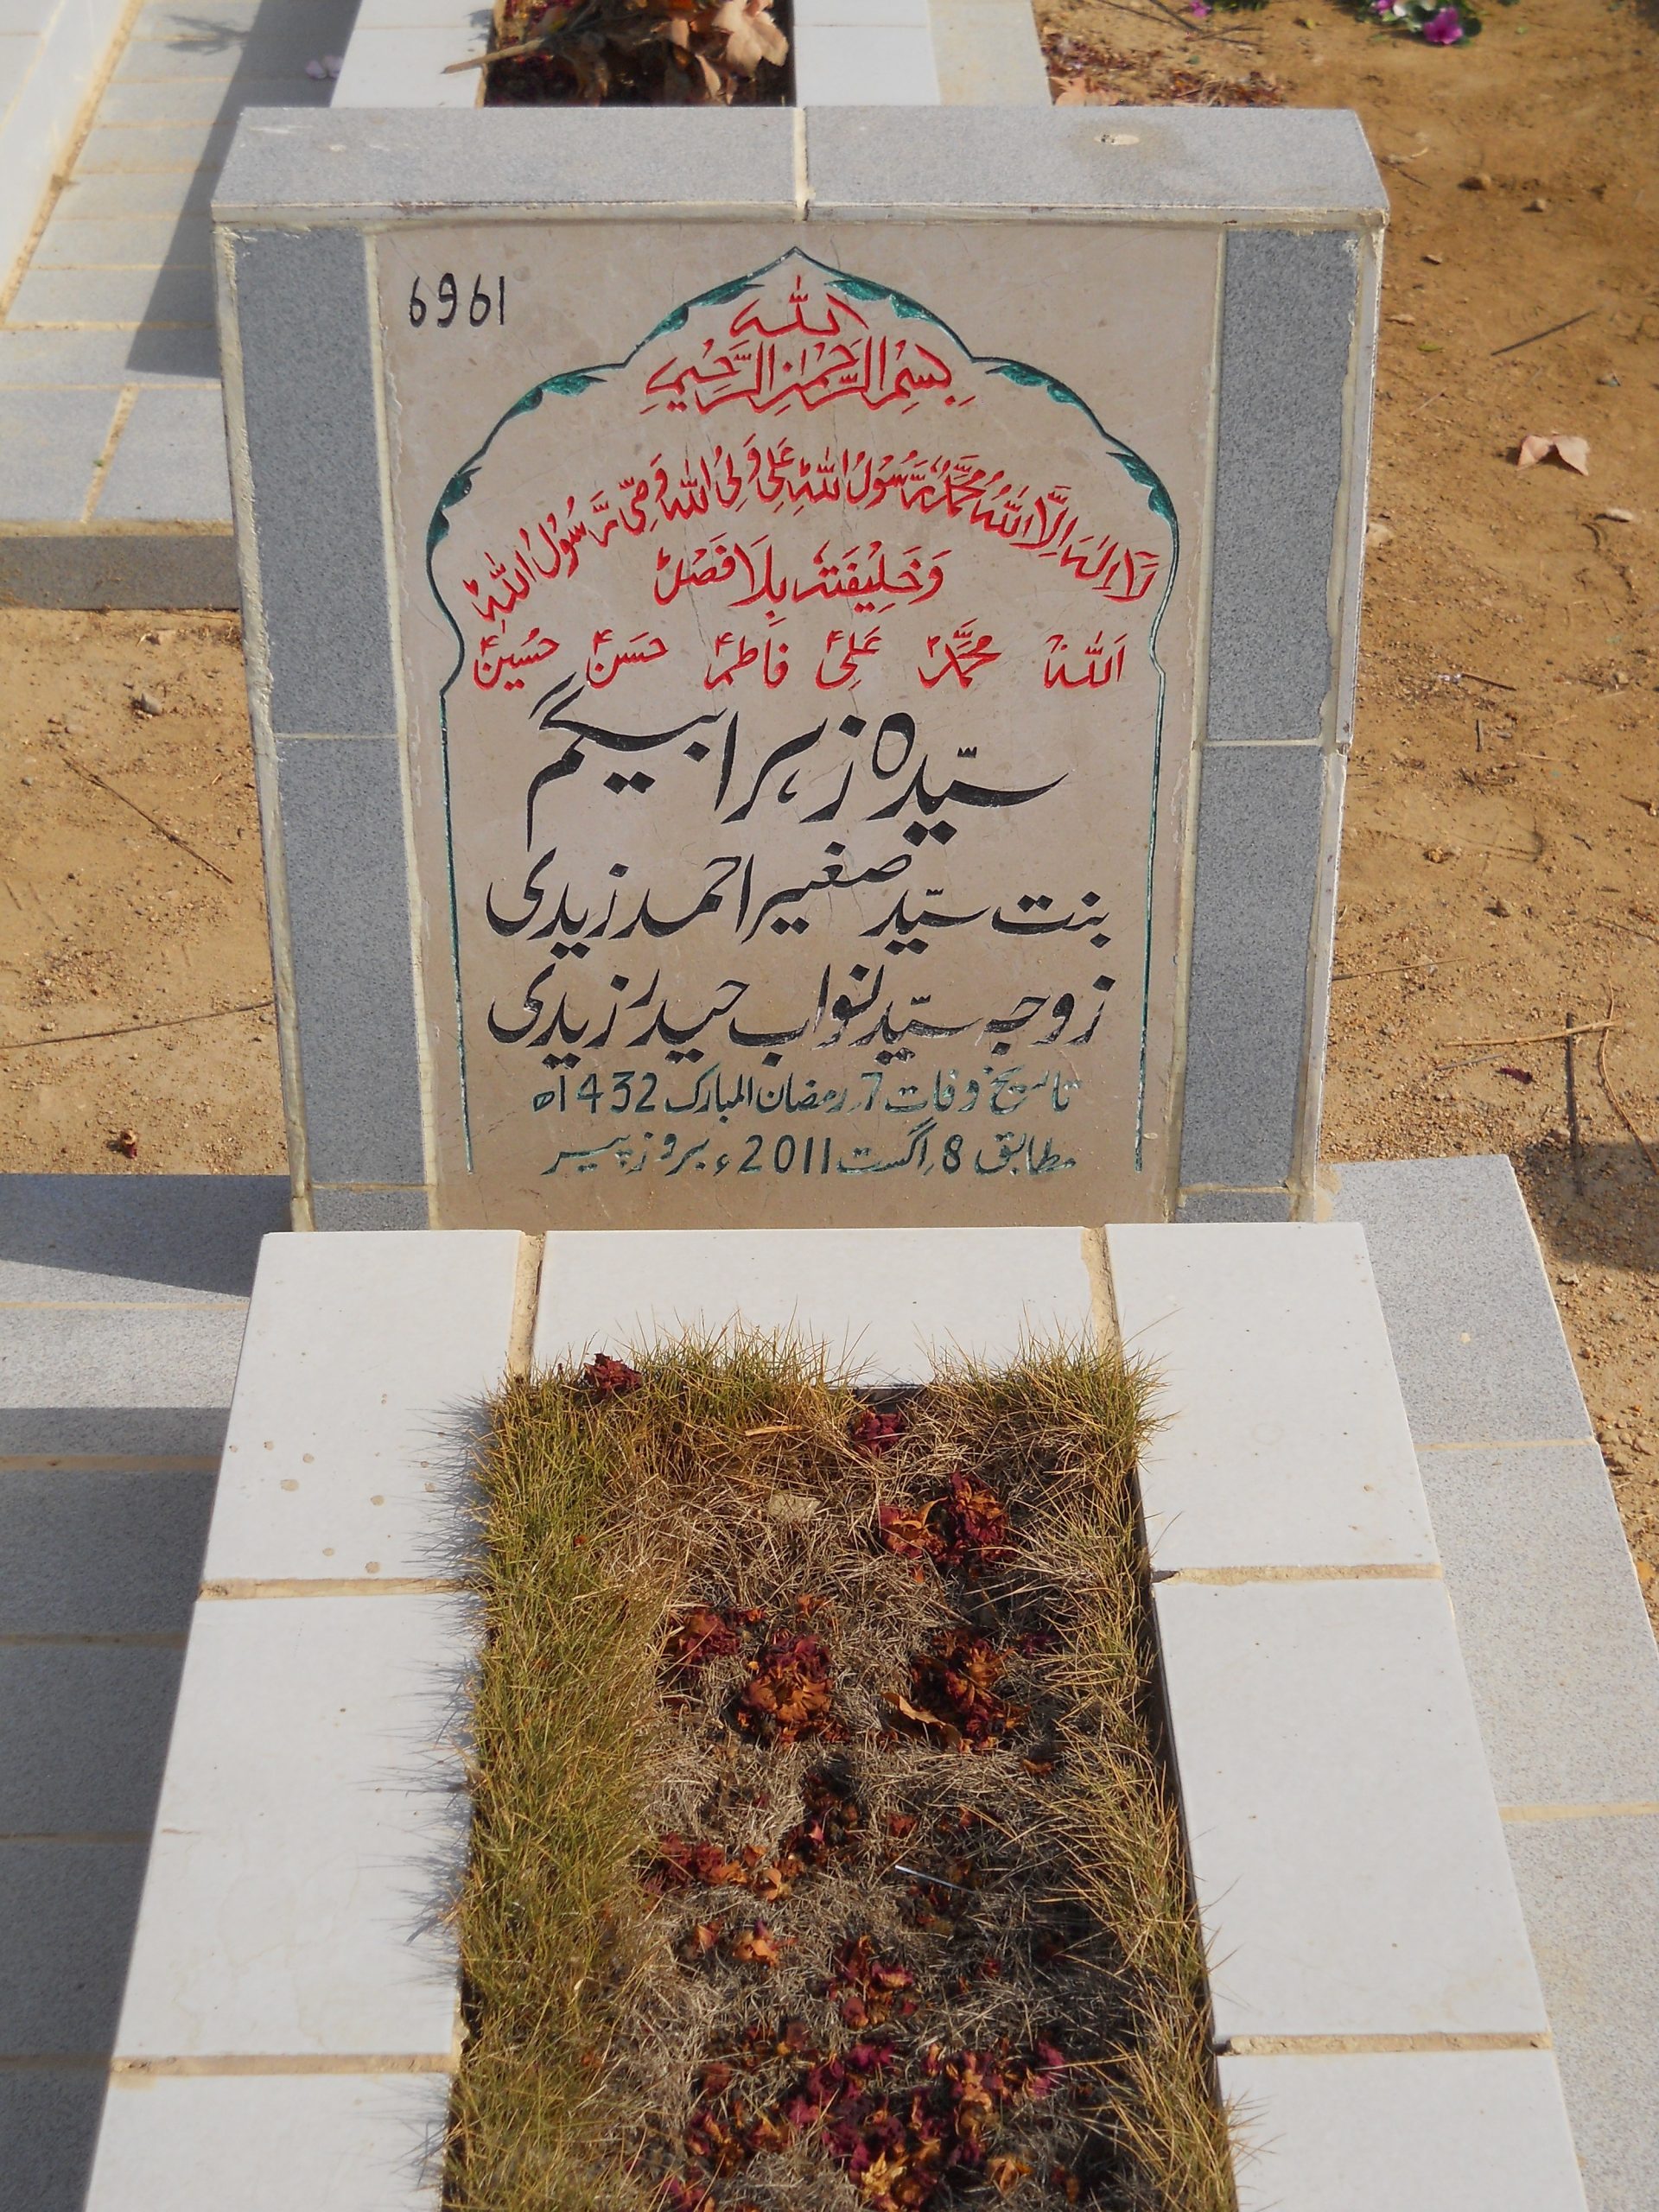 6961
بِسْمِ اللّٰهِ الرَّحْمٰنِ الرَّحِیْمِ
لَا اِلٰهَ اِلَّا اللّٰهُ مُحَمَّدٌ رَّسُوْلُ اللّٰهِ عَلِیٌّ وَلِیُّ اللّٰهِ وَصِیُّ رَسُوْلُ اللّٰهِ
وَخَلِیْفَتُهٗ بِلَا فَصْل
اَللّٰهُ مُحَمَّدؐ عَلِیؑ فاطمہؑ حسنؑ حُسینؑ
سیّدہ زہرا بیگم
بنت سیّد صغیر احمد زیدی
زوجہ سیّد نواب حیدر زیدی
تاریخ وفات 7؍ رمضان المبارک 1432ھ
مطابق 8؍ اگست 2011ء بروز پیر